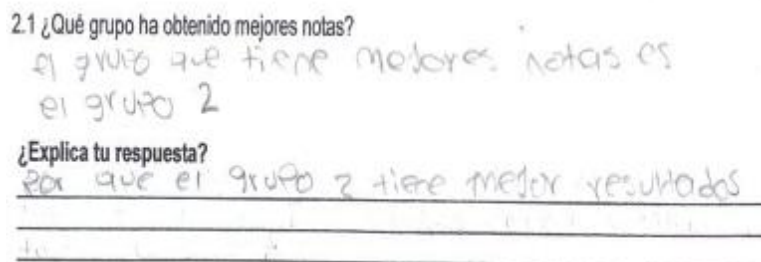 2.1 ¿Qué grupo ha obtenido mejores notas?
el grupo que tiene mejores notas es
el grupo 2
¿Explica tu respuesta?
por que el grupo 2 tiene mejor resultados